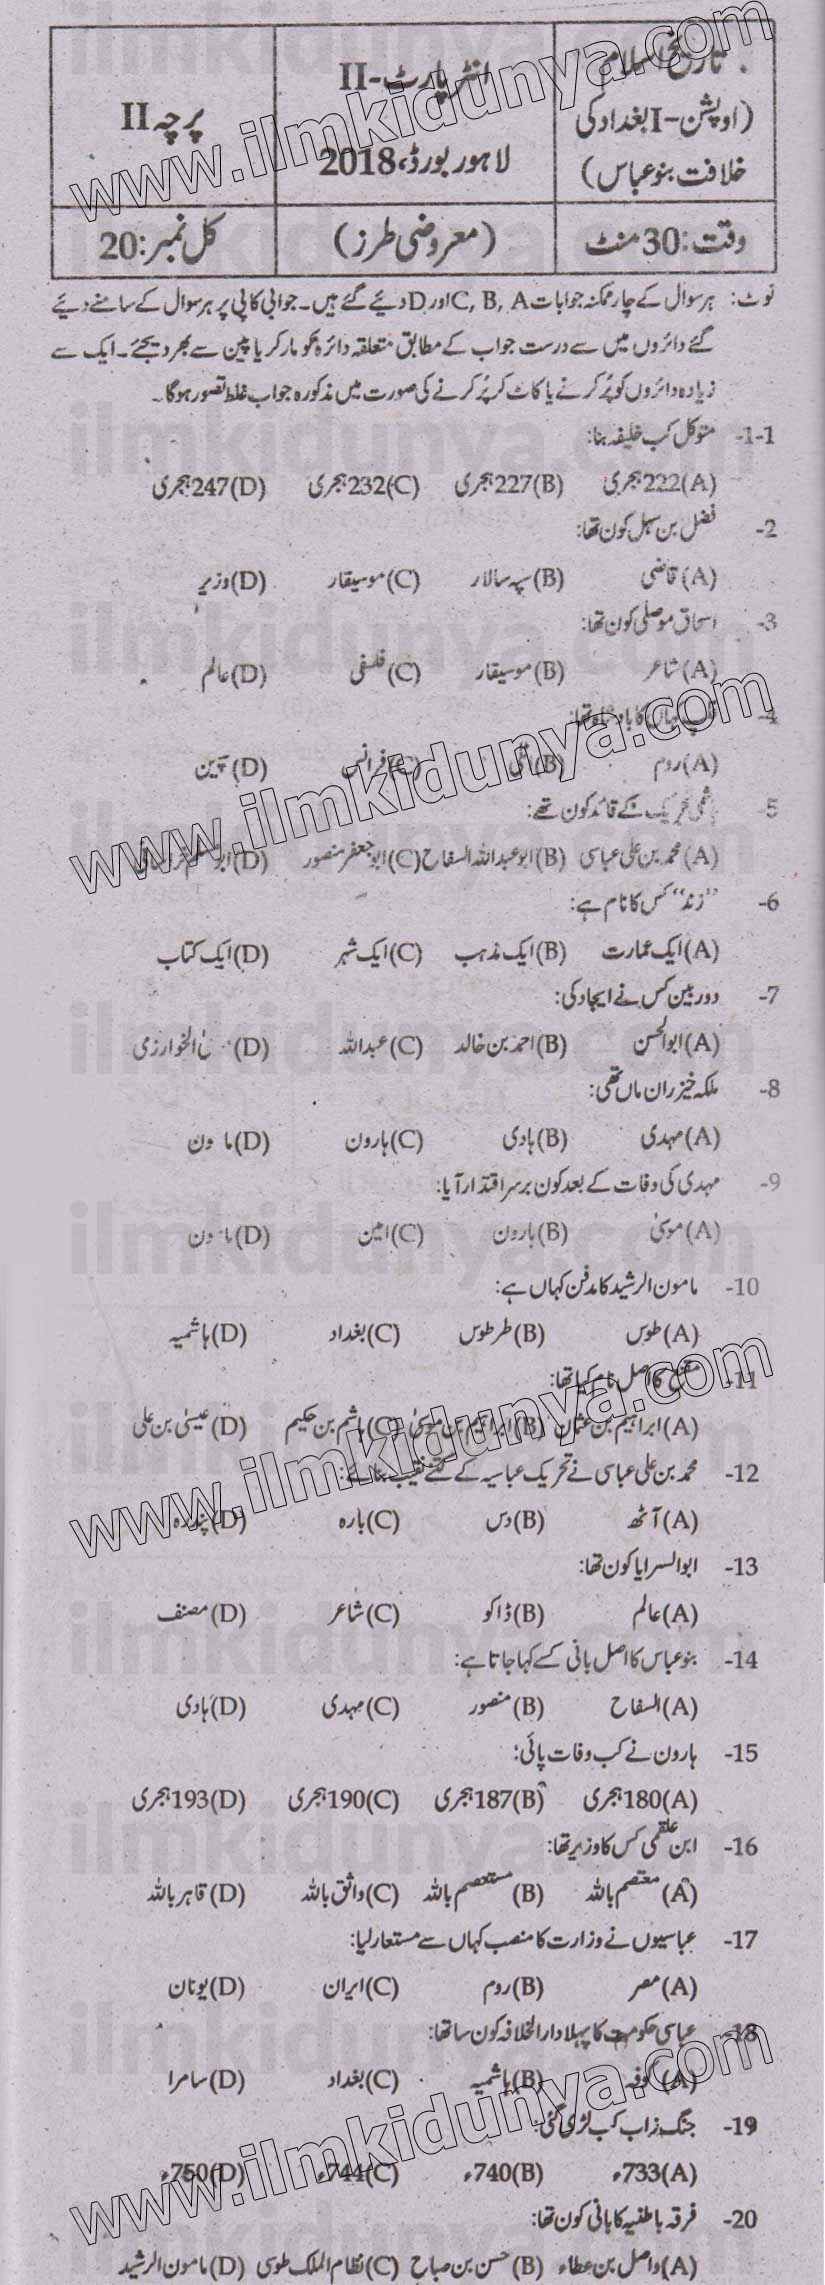 تاریخ اسلام
(اوپشن-I بغداد کی
خلافت بنو عباس)
انٹر پارٹ-II
لاہور بورڈ، 2018
پرچہ II
وقت: 30 منٹ
(معروضی طرز)
کل نمبر: 20
نوٹ: ہر سوال کے چار ممکنہ جوابات C, B, A اور D دیئے گئے ہیں۔ جوابی کاپی پر ہر سوال کے سامنے دیئے
گئے دائروں میں سے درست جواب کے مطابق متعلقہ دائرہ کو مارکر یا پین سے بھر دیجئے۔ ایک سے
زیادہ دائروں کو پُر کرنے یا کاٹ کر پُر کرنے کی صورت میں مذکورہ جواب غلط تصور ہوگا۔
1-1- متوکل کب خلیفہ بنا:
(A) 222 ہجری (B) 227 ہجری (C) 232 ہجری (D) 247 ہجری
2- فضل بن سہل کون تھا:
(A) قاضی (B) سپہ سالار (C) موسیقار (D) وزیر
3- اسحاق موصلی کون تھا:
(A) شاعر (B) موسیقار (C) فلسفی (D) عالم
4- کہاں کا بادشاہ تھا:
(A) روم (B) اٹلی (C) فرانس (D) چین
5- ہاشمی تحریک کے قائد کون تھے:
(A) محمد بن علی عباسی (B) ابو عبداللہ السفاح (C) ابو جعفر منصور (D) ابو مسلم خراسانی
6- ''زند'' کس کا نام ہے:
(A) ایک عمارت (B) ایک مذہب (C) ایک شہر (D) ایک کتاب
7- دوربین کس نے ایجاد کی:
(A) ابوالحسن (B) احمد بن خالد (C) عبداللہ (D) الخوارزمی
8- ملکہ خیزران ماں تھی:
(A) مہدی (B) ہادی (C) ہارون (D) مامون
9- مہدی کی وفات کے بعد کون برسراقتدار آیا:
(A) موسیٰ (B) ہارون (C) امین (D) مامون
10- مامون الرشید کا مدفن کہاں ہے:
(A) طوس (B) طرطوس (C) بغداد (D) ہاشمیہ
11- مقنع کا اصل نام کیا تھا:
(A) ابراہیم بن عثمان (B) ابراہیم بن موسیٰ (C) ہاشم بن حکیم (D) عیسیٰ بن علی
12- محمد بن علی عباسی نے تحریک عباسیہ کے کتنے نقیب بنائے:
(A) آٹھ (B) دس (C) بارہ (D) پندرہ
13- ابوالسرایا کون تھا:
(A) عالم (B) ڈاکو (C) شاعر (D) مصنف
14- بنو عباس کا اصل بانی کسے کہا جاتا ہے:
(A) السفاح (B) منصور (C) مہدی (D) ہادی
15- ہارون نے کب وفات پائی:
(A) 180 ہجری (B) 187 ہجری (C) 190 ہجری (D) 193 ہجری
16- ابن علقمی کس کا وزیر تھا:
(A) معتصم باللہ (B) مستعصم باللہ (C) واثق باللہ (D) قاہر باللہ
17- عباسیوں نے وزارت کا منصب کہاں سے مستعار لیا:
(A) مصر (B) روم (C) ایران (D) یونان
18- عباسی حکومت کا پہلا دارالخلافہ کون سا تھا:
(A) کوفہ (B) ہاشمیہ (C) بغداد (D) سامرا
19- جنگ زاب کب لڑی گئی:
(A) 733ء (B) 740ء (C) 744ء (D) 750ء
20- فرقہ باطنیہ کا بانی کون تھا:
(A) واصل بن عطاء (B) حسن بن صباح (C) نظام الملک طوسی (D) مامون الرشید
www.ilmkidunya.com
www.ilmkidunya.com
www.ilmkidunya.com
www.ilmkidunya.com